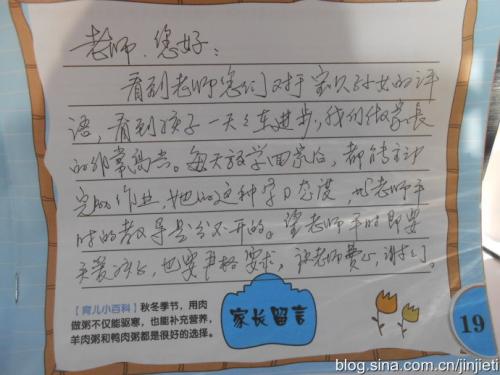 老师、您好：
看到老师您们对于宝贝子女的评
语，看到孩子一天天在进步，我们做家长
的非常高兴。每天放学回家后，都能主动
完成作业，她的这种学习态度，与老师平
时的教导是分不开的。望老师平时即要
关爱孩子，也要严格要求，让老师费心，谢谢了。
【育儿小百科】秋冬季节，用肉
做粥不仅能驱寒，也能补充营养，
羊肉粥和鸭肉粥都是很好的选择。
家长留言
19
blog.sina.com.cn/jinjieti